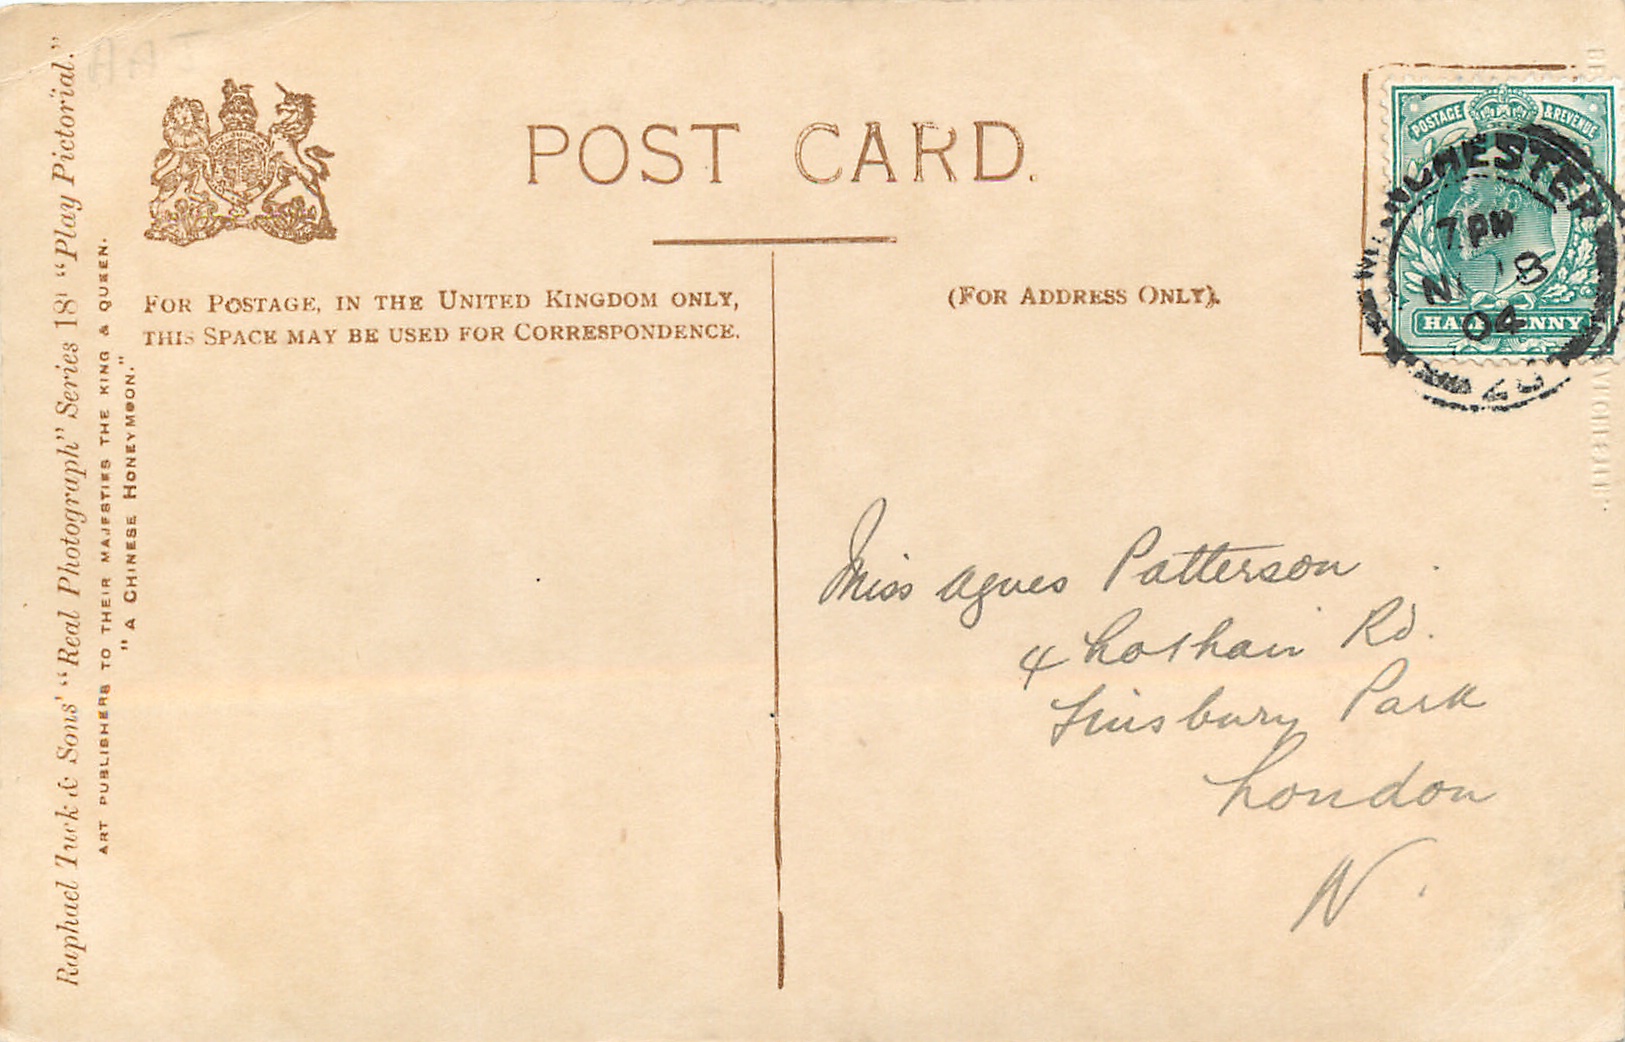 POST CARD.
FOR POSTAGE, IN THE UNITED KINGDOM ONLY,
THIS SPACE MAY BE USED FOR CORRESPONDENCE.
(FOR ADDRESS ONLY).
Raphael Tuck & Sons' "Real Photograph" Series 18 "Play Pictorial."
ART PUBLISHERS TO THEIR MAJESTIES THE KING & QUEEN.
"A CHINESE HONEYMOON."
POSTAGE & REVENUE
HALFPENNY
MANCHESTER
7 PM
04
Miss Agnes Patterson
4 Lothair Rd.
Finsbury Park
London
N.